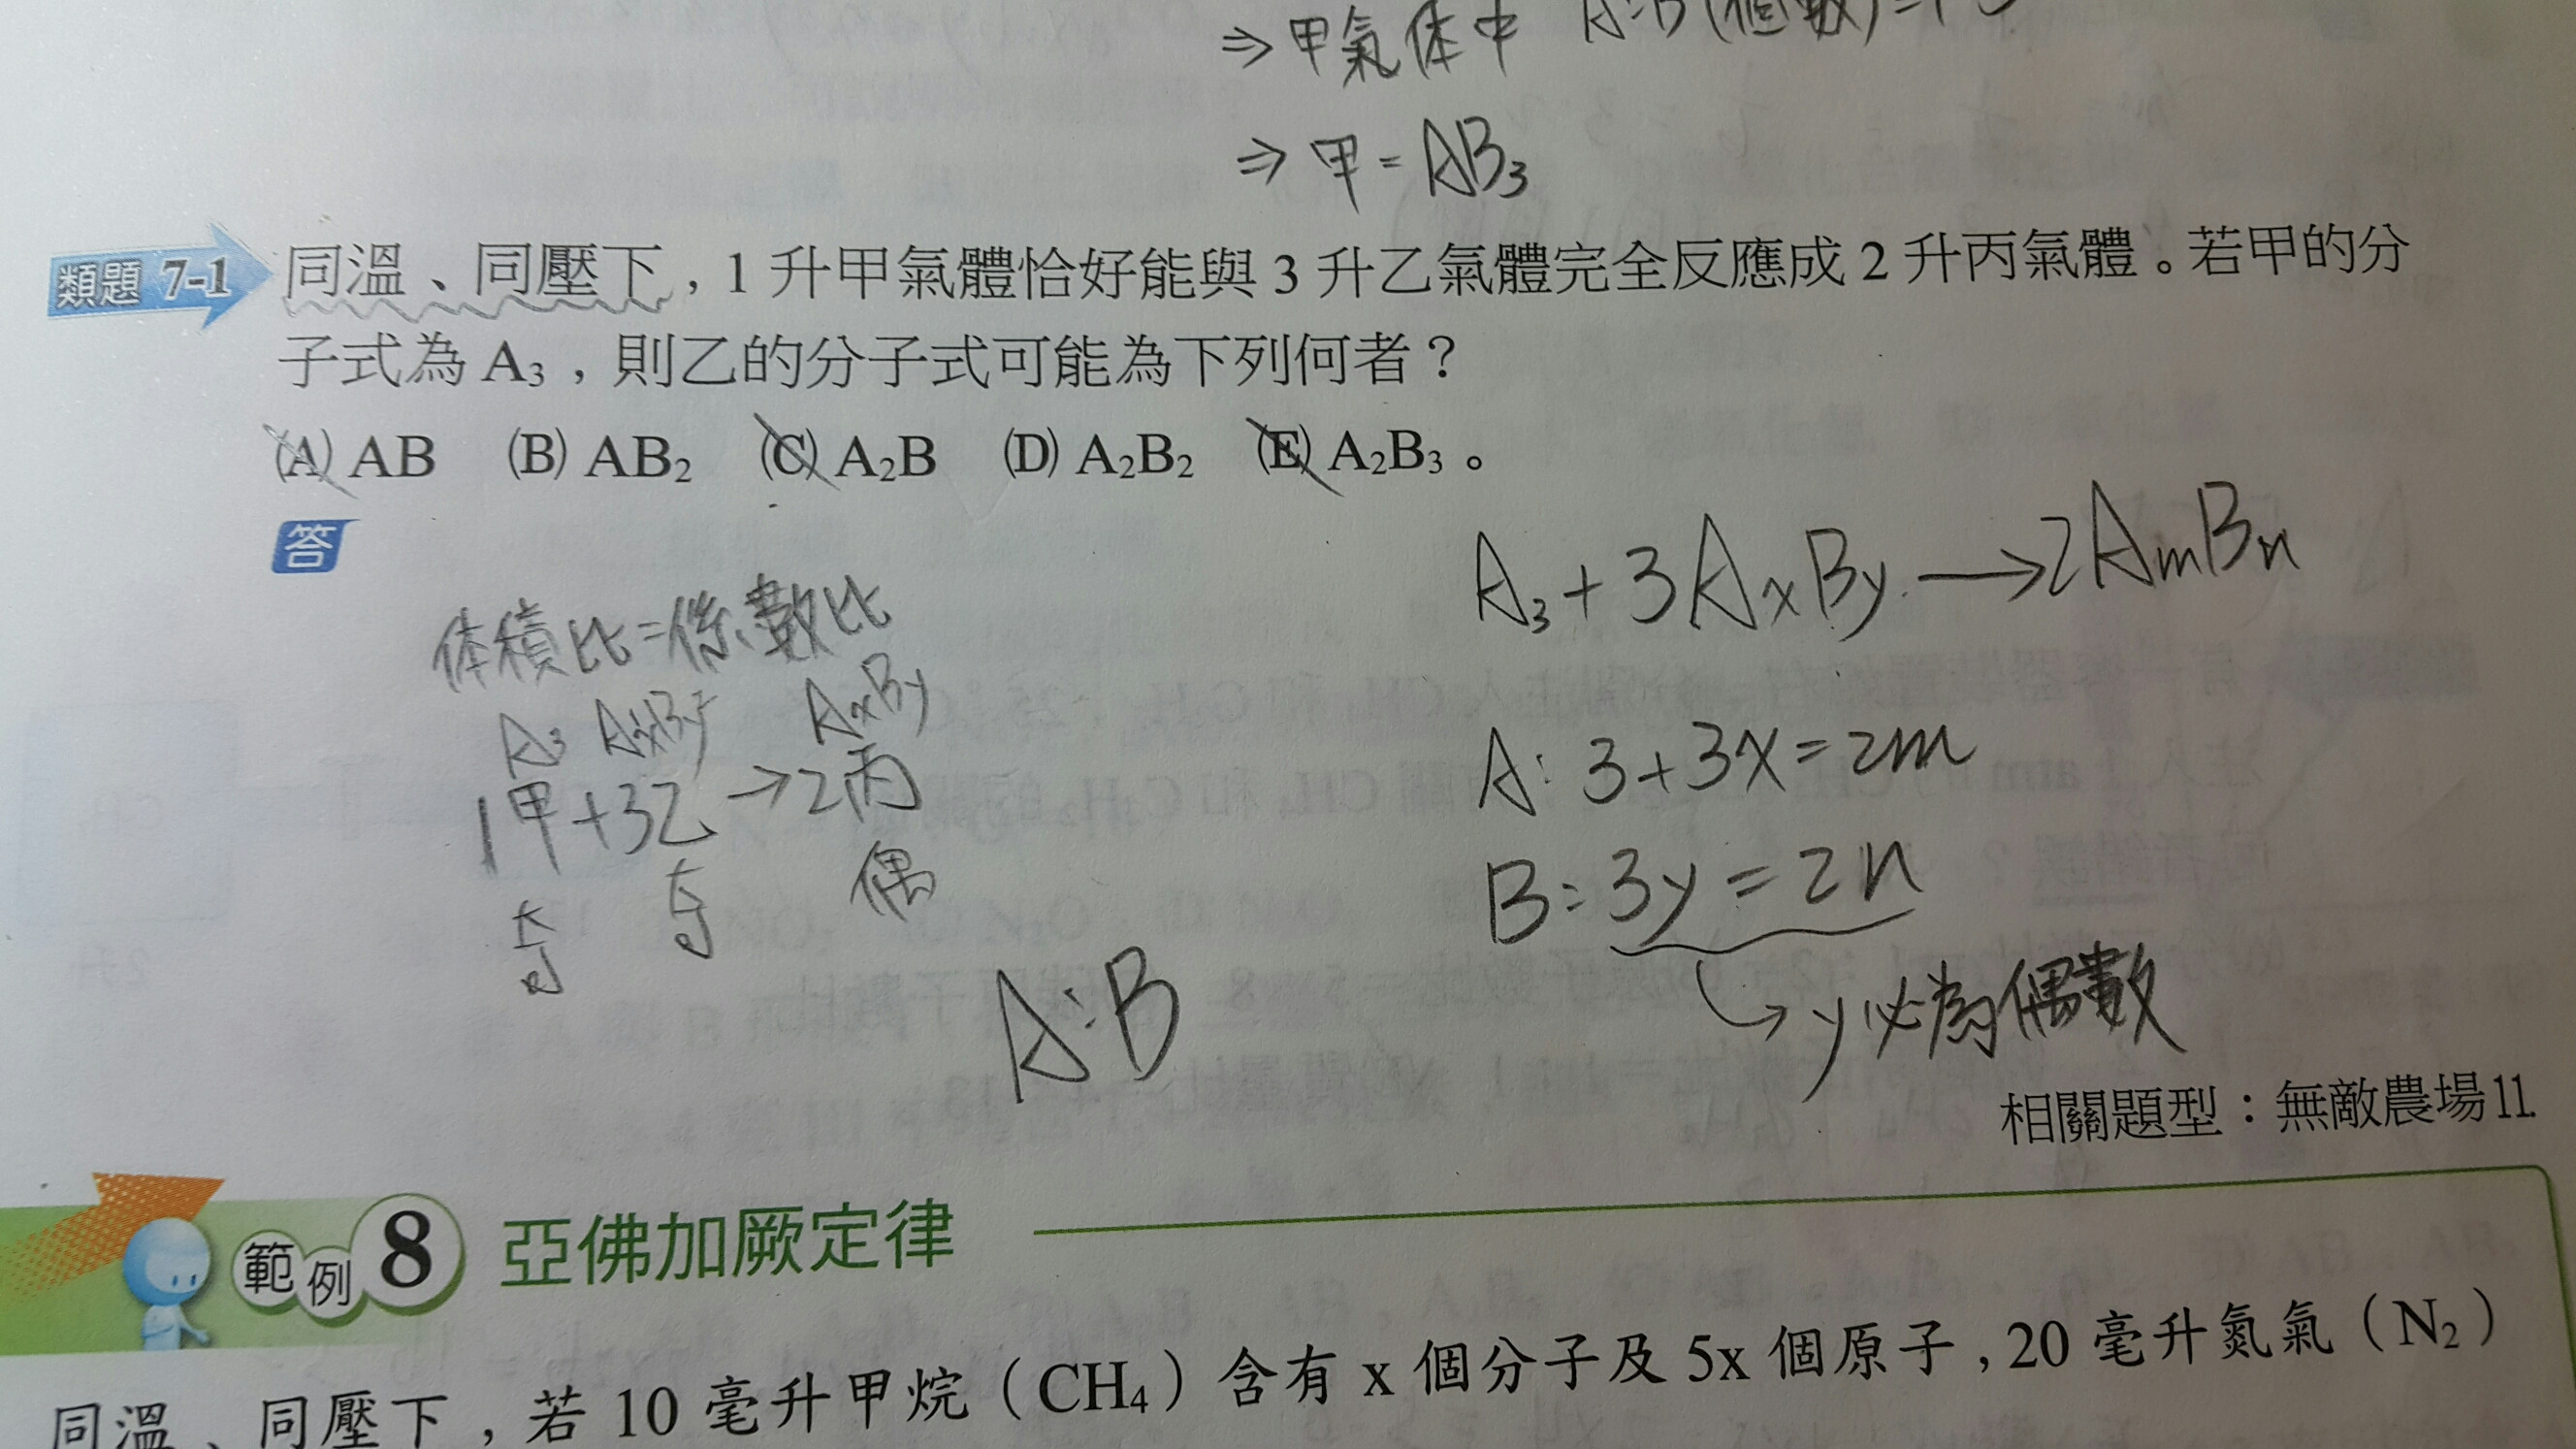 ⇒甲氣体中 A:B(個數)=1:3
⇒ 甲 = AB₃
類題 7-1 同溫、同壓下，1 升甲氣體恰好能與 3 升乙氣體完全反應成 2 升丙氣體。若甲的分
子式為 A₃，則乙的分子式可能為下列何者？
(A) AB (B) AB₂ (C) A₂B (D) A₂B₂ (E) A₂B₃。
答
体積比=係數比
A₃ AxBy AxBy
1甲+3乙→2丙
奇 奇 偶
A:B
A₃+3AxBy→2AmBn
A: 3+3x=2m
B: 3y=2n
→y必為偶數
相關題型：無敵農場11.
範例 8 亞佛加厥定律
同溫、同壓下，若 10 毫升甲烷（CH₄）含有 x 個分子及 5x 個原子，20 毫升氮氣（N₂）